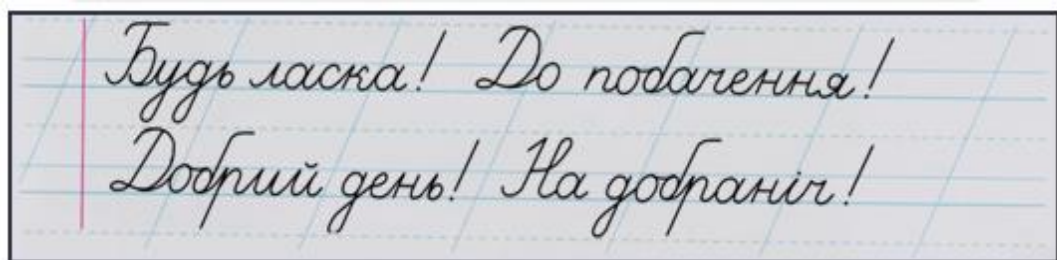 Будь ласка! До побачення!
Добрий день! На добраніч!